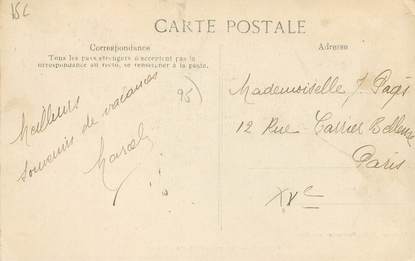 15c
CARTE POSTALE
Correspondance
Tous les pays étrangers n'acceptent pas la
correspondance au recto, se renseigner à la poste.
Adresse
95)
Meilleurs
souvenirs de vacances
Marcel
Mademoiselle J. Pagès
12 Rue Carrier Belleuse
Paris
XVe